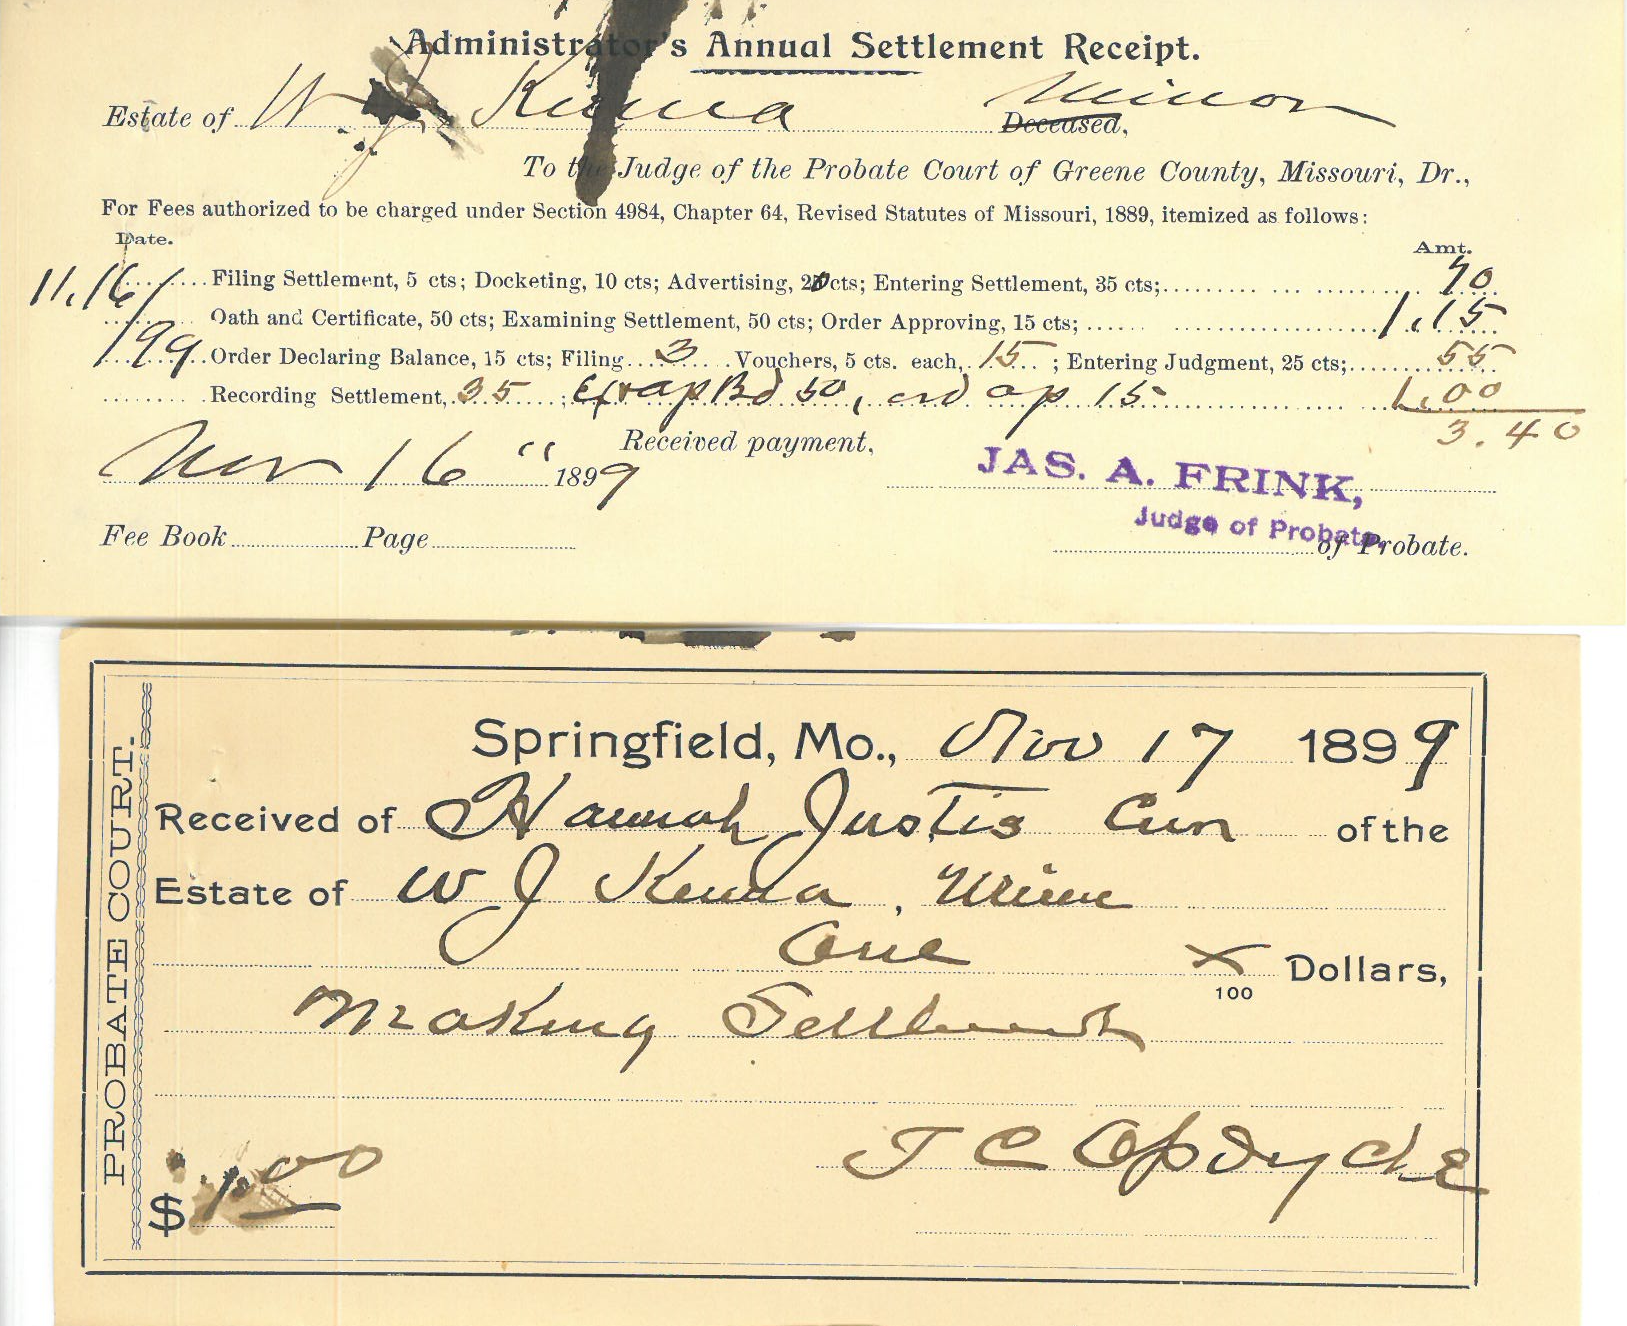 Administrator's Annual Settlement Receipt.
Estate of W J Kenna Minor Deceased,
To the Judge of the Probate Court of Greene County, Missouri, Dr.,
For Fees authorized to be charged under Section 4984, Chapter 64, Revised Statutes of Missouri, 1889, itemized as follows:
Date. Amt.
11.16/ Filing Settlement, 5 cts; Docketing, 10 cts; Advertising, 20 cts; Entering Settlement, 35 cts; 70
Oath and Certificate, 50 cts; Examining Settlement, 50 cts; Order Approving, 15 cts; 1.15
199 Order Declaring Balance, 15 cts; Filing 3 Vouchers, 5 cts. each, 15 ; Entering Judgment, 25 cts; 55
Recording Settlement, 35 ; ap Bd 50, ord ap 15 1.00
3.40
Nov 16 " 1899 Received payment,
JAS. A. FRINK,
Judge of Probate.
Fee Book Page of Probate.
PROBATE COURT.
Springfield, Mo., Nov 17 1899
Received of Hannah Justis Cur of the
Estate of W J Kenna, Minor
One x/100 Dollars,
Making Settlement
$1.00 T C Opdycke